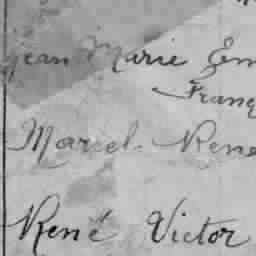 Jean Marie Em
Franç
Marcel René
René Victor